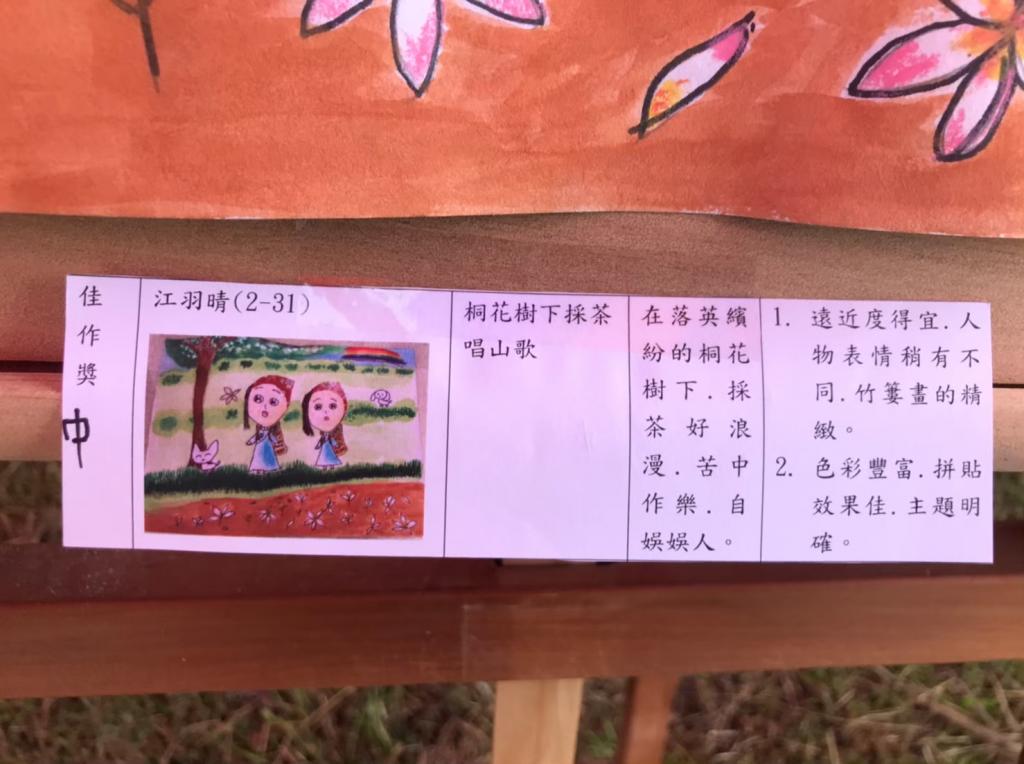 佳
作
獎
中
江羽晴(2-31)
桐花樹下採茶
唱山歌
在落英繽
紛的桐花
樹下.採
茶好浪
漫.苦中
作樂.自
娛娛人。
1. 遠近度得宜.人
物表情稍有不
同.竹簍畫的精
緻。
2. 色彩豐富.拼貼
效果佳.主題明
確。